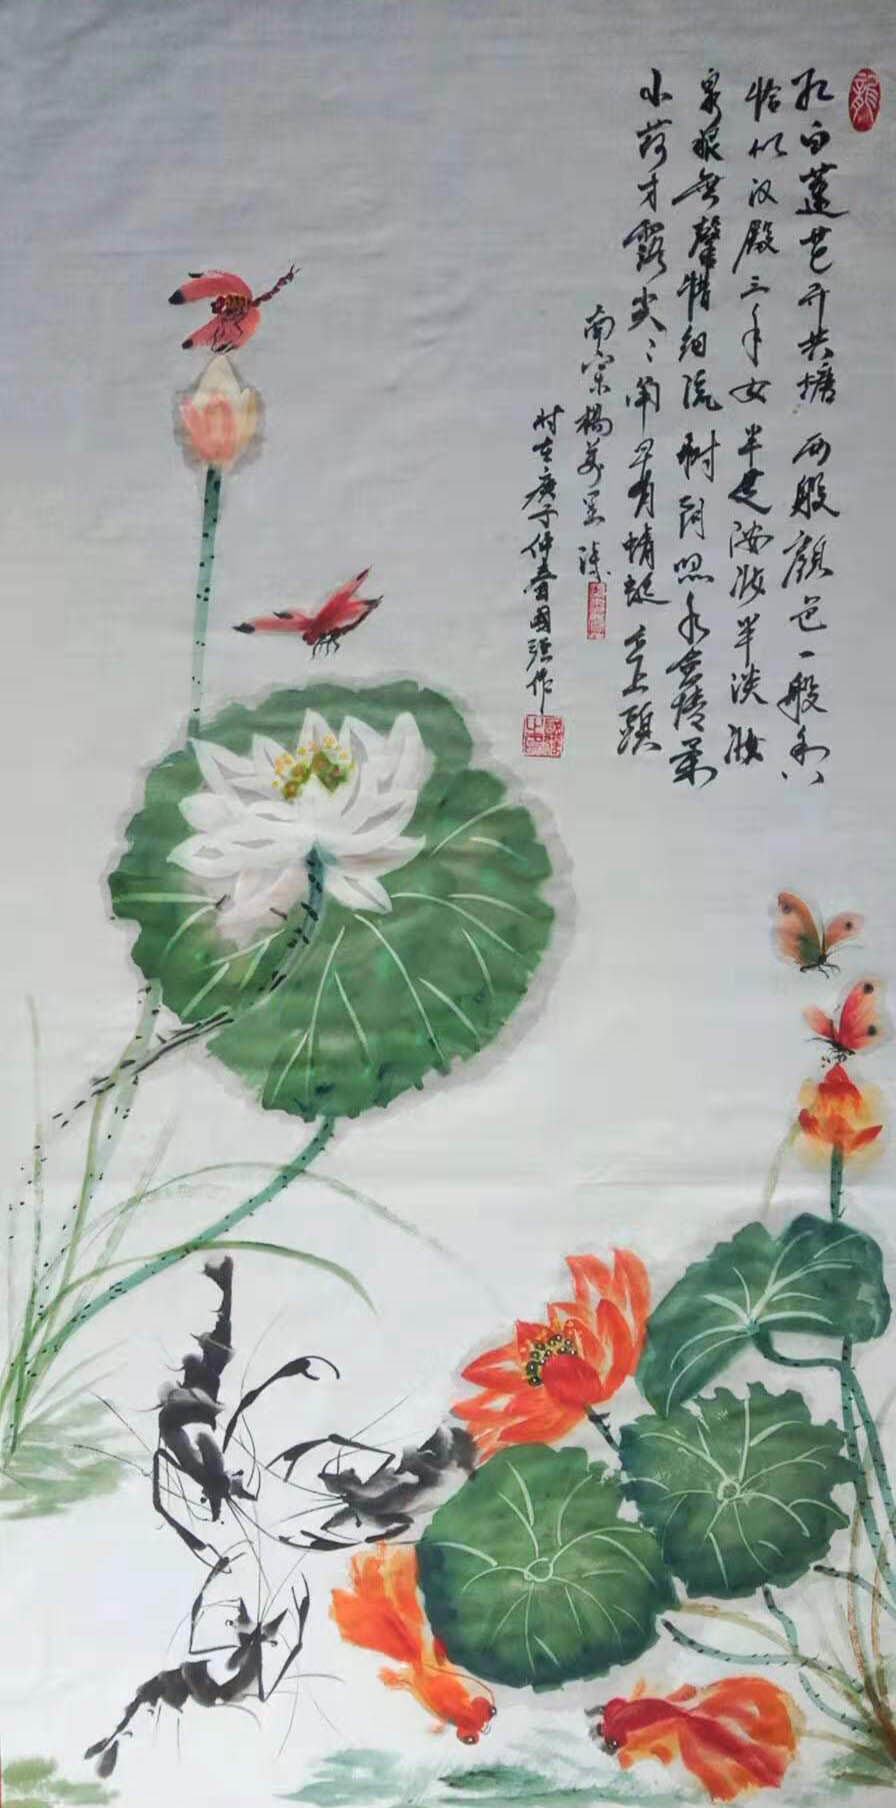 龍
红白莲花开共塘两般颜色一般香
恰似汉殿三千女半是浓妆半淡妆
泉眼無聲惜细流树阴照水爱晴柔
小荷才露尖〻角早有蜻蜓立上頭
南宋楊万里诗
时在庚子仲春國强作